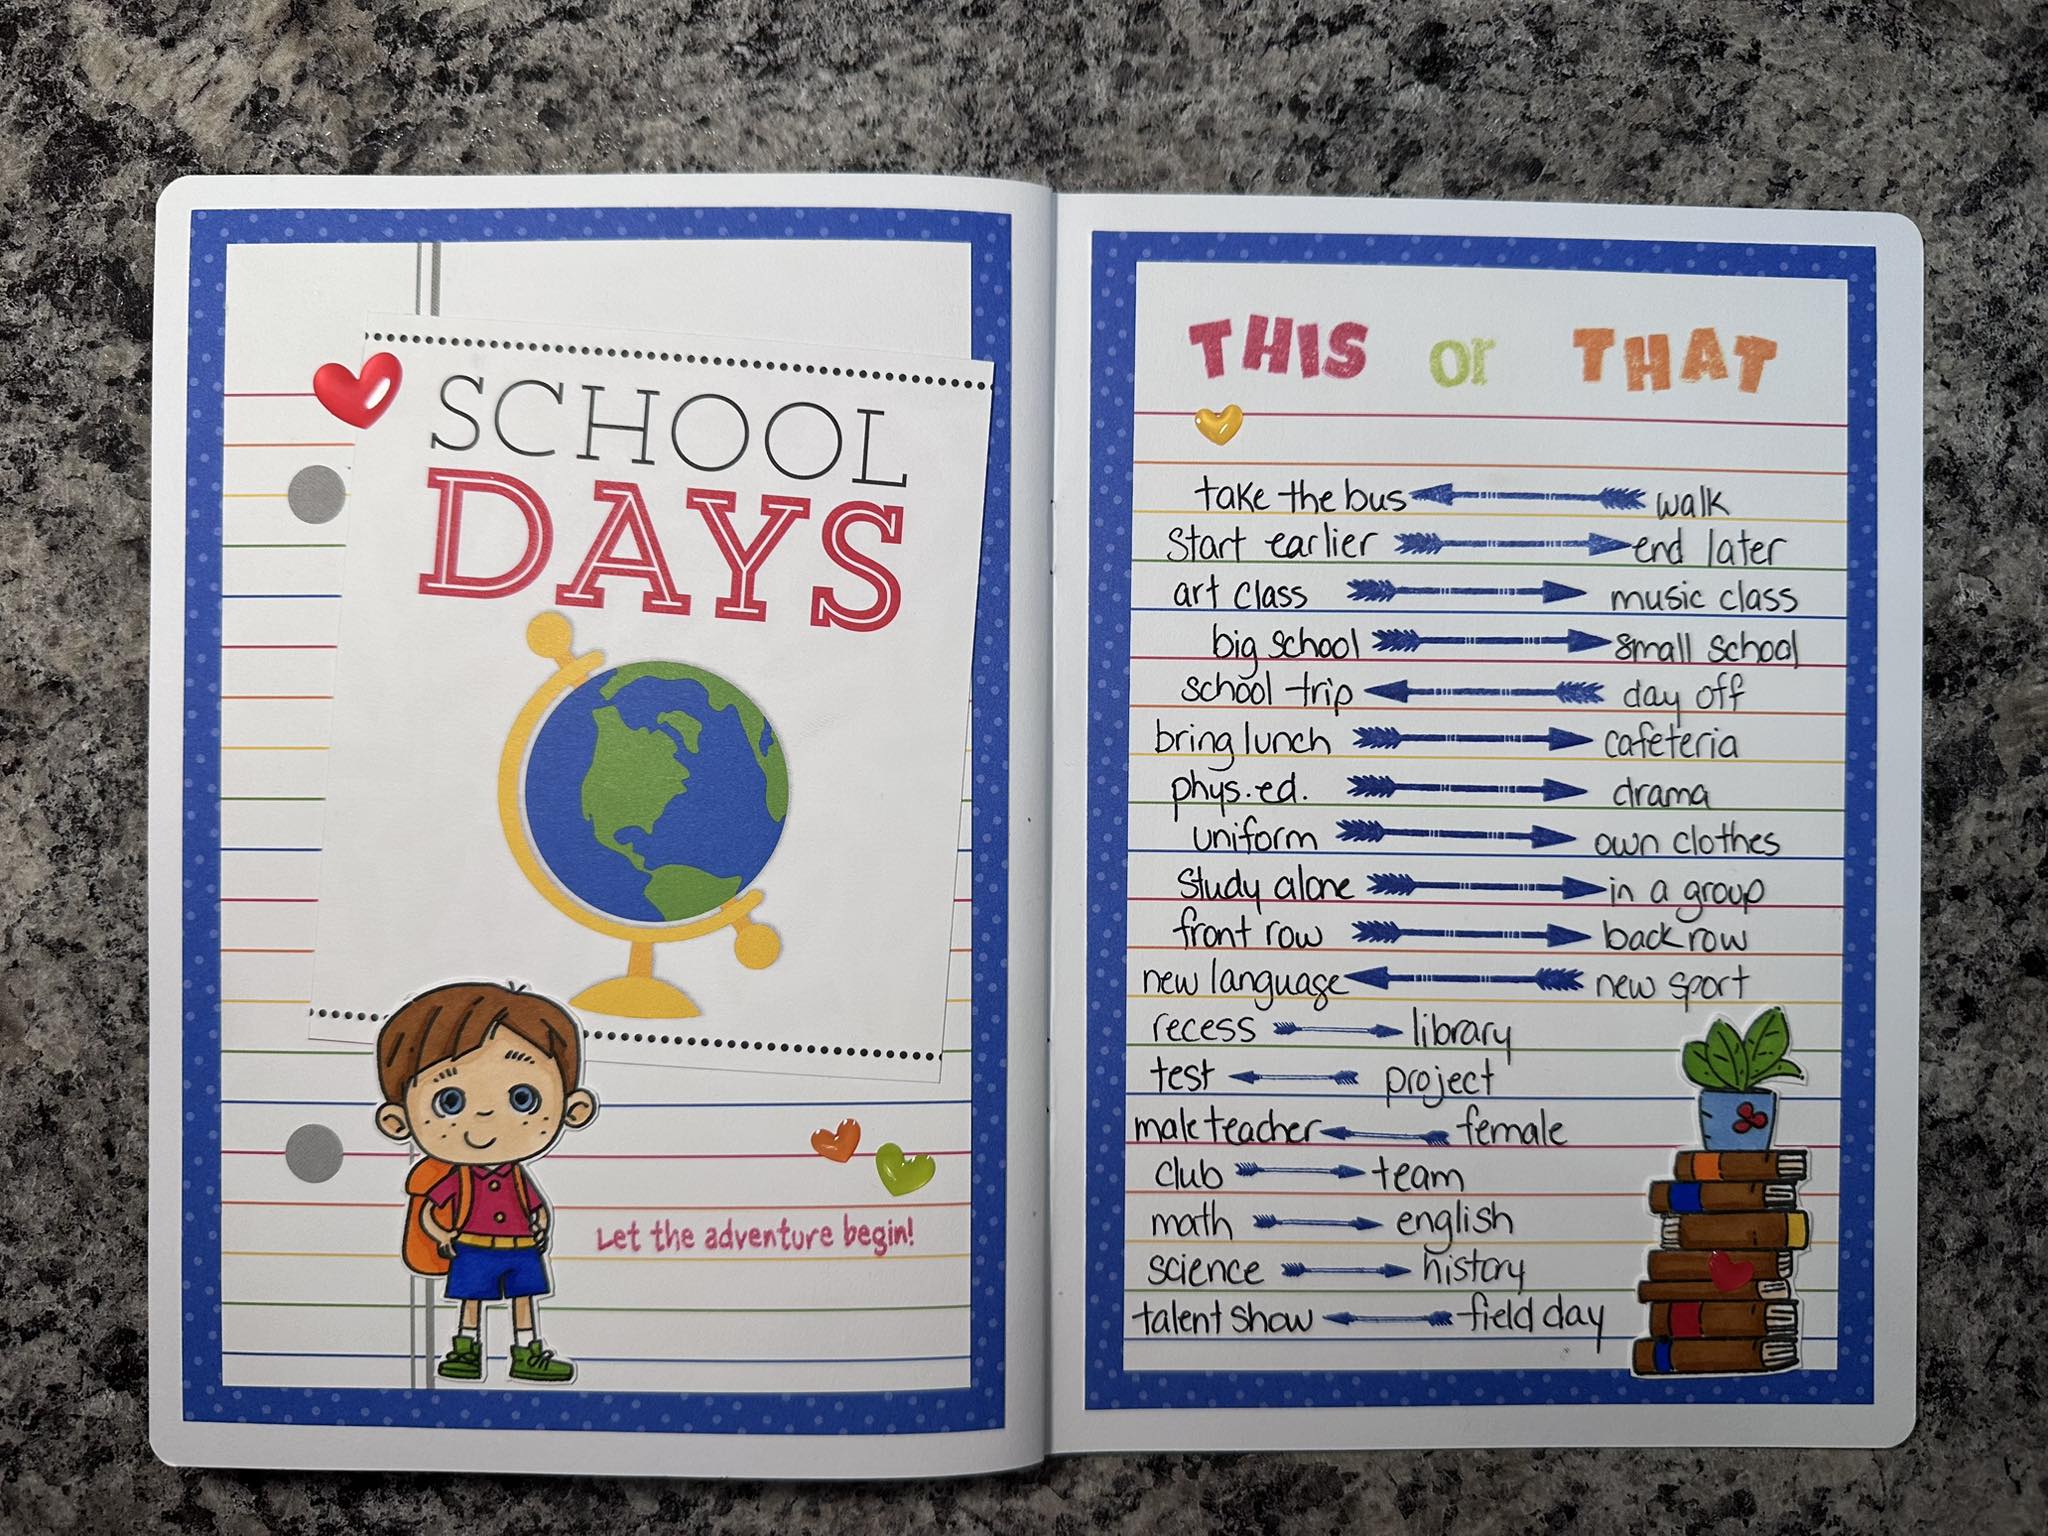 SCHOOL
DAYS
Let the adventure begin!
THIS or THAT
take the bus walk
Start earlier end later
art class music class
big school small school
school trip day off
bring lunch cafeteria
phys. ed. drama
uniform own clothes
study alone in a group
front row back row
new language new sport
recess library
test project
male teacher female
club team
math english
science history
talent show field day